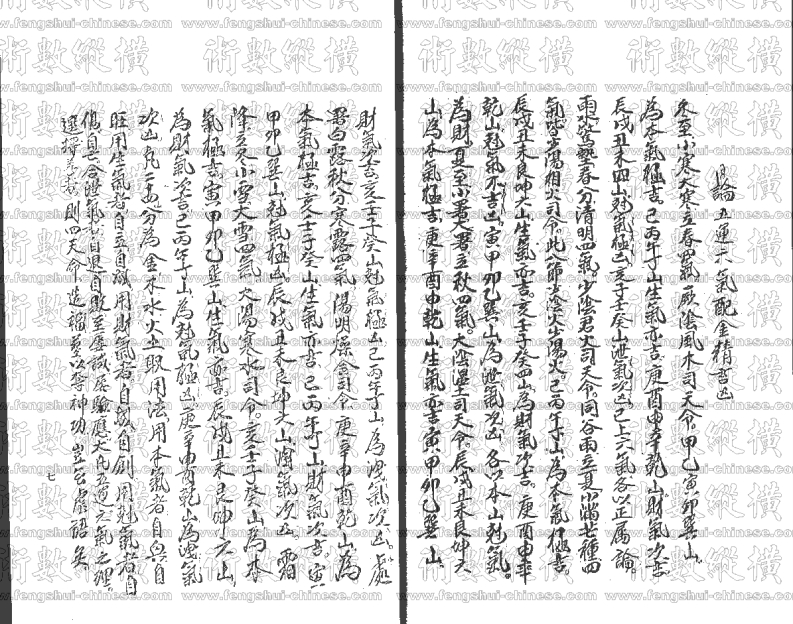 論五運六氣配金精吉凶
冬至小寒大寒立春四氣厥陰風木司天令甲乙寅卯巽山
為本氣極吉己丙午丁山生氣亦吉庚酉申辛乾山財氣次吉
辰戌丑未四山尅氣極凶亥子壬癸山泄氣次凶已上六氣各以正屬論
雨水驚蟄春分清明四氣少陰君火司天令同谷雨立夏小滿芒種四
氣皆少陽相火司令此八節少陰火少陽火己丙午丁山為本氣極吉
辰戌丑未艮坤六山生氣亦吉亥壬子癸四山為財氣次吉庚酉申辛
乾山尅氣不吉凶寅甲卯乙巽山為泄氣次凶各以本山尅氣
為財夏至小暑大暑立秋四氣太陰濕土司天令辰戌丑未艮坤六
山為本氣極吉庚辛酉申乾山生氣亦吉寅甲卯乙巽山
財氣次吉亥壬子癸山尅氣極凶己丙午丁山為洩氣次凶處
暑白露秋分寒露四氣陽明燥金司令庚辛申酉乾山為
本氣極吉亥壬子癸山生氣亦吉己丙午丁山財氣次吉寅
甲卯乙巽山尅氣極凶辰戌丑未艮坤六山瀉氣次凶霜
降立冬小雪大雪四氣太陽寒水司令亥壬子癸山為本
氣極吉寅甲卯乙巽山生氣亦吉辰戌丑未艮坤六山
為財氣次吉己丙午丁山為尅氣極凶庚辛申酉乾山為洩氣
次凶凡二至二分為金木水火土取用法用本氣者自興自
旺用生氣者自立自成用財氣者自敗自創用尅氣者自
傷自會洩氣者自退自敗至虔誠屢驗應大凡五運六氣之理
選擇者則四天命造福豈以奪神功豈云虛語矣
七
術數縱橫
www.fengshui-chinese.com